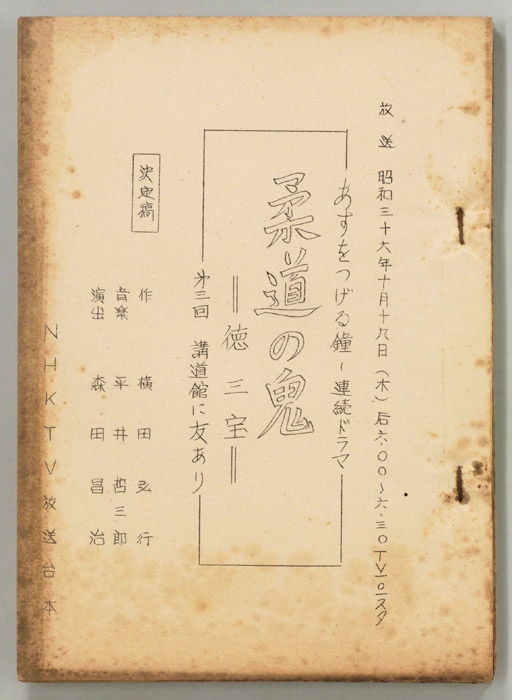 放送 昭和三十六年十月十九日（木）后六.〇〇～六.三〇TV一〇一スタ
あすをつげる鐘－連続ドラマ
柔道の鬼
＝徳三宝＝
第三回 講道館に友あり
決定稿
作 横田弘行
音楽 平井哲三郎
演出 森田昌治
NHKTV放送台本